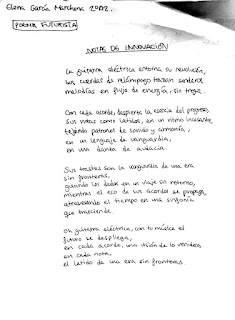 Elena García Marchena 2ºA2.
POEMA FUTURISTA
NOTAS DE INNOVACIÓN
La guitarra eléctrica entona su revolución,
sus cuerdas de relámpago trazan senderos
melodías en flujo de energía, sin tregua.
Con cada acorde, despierta la esencia del progreso,
sus notas como latidos, en un ritmo incesante,
tejiendo patrones de sonido y armonía,
en un lenguaje de vanguardia,
en una danza de audacia.
Sus trastes son la vanguardia de una era
sin fronteras,
guiando los dedos en un viaje sin retorno,
mientras el eco de sus acordes se propaga,
atravesando el tiempo en una sinfonía
que trasciende.
Oh guitarra eléctrica, con tu música el
futuro se despliega,
en cada acorde, una visión de lo venidero,
en cada nota,
el latido de una era sin fronteras.